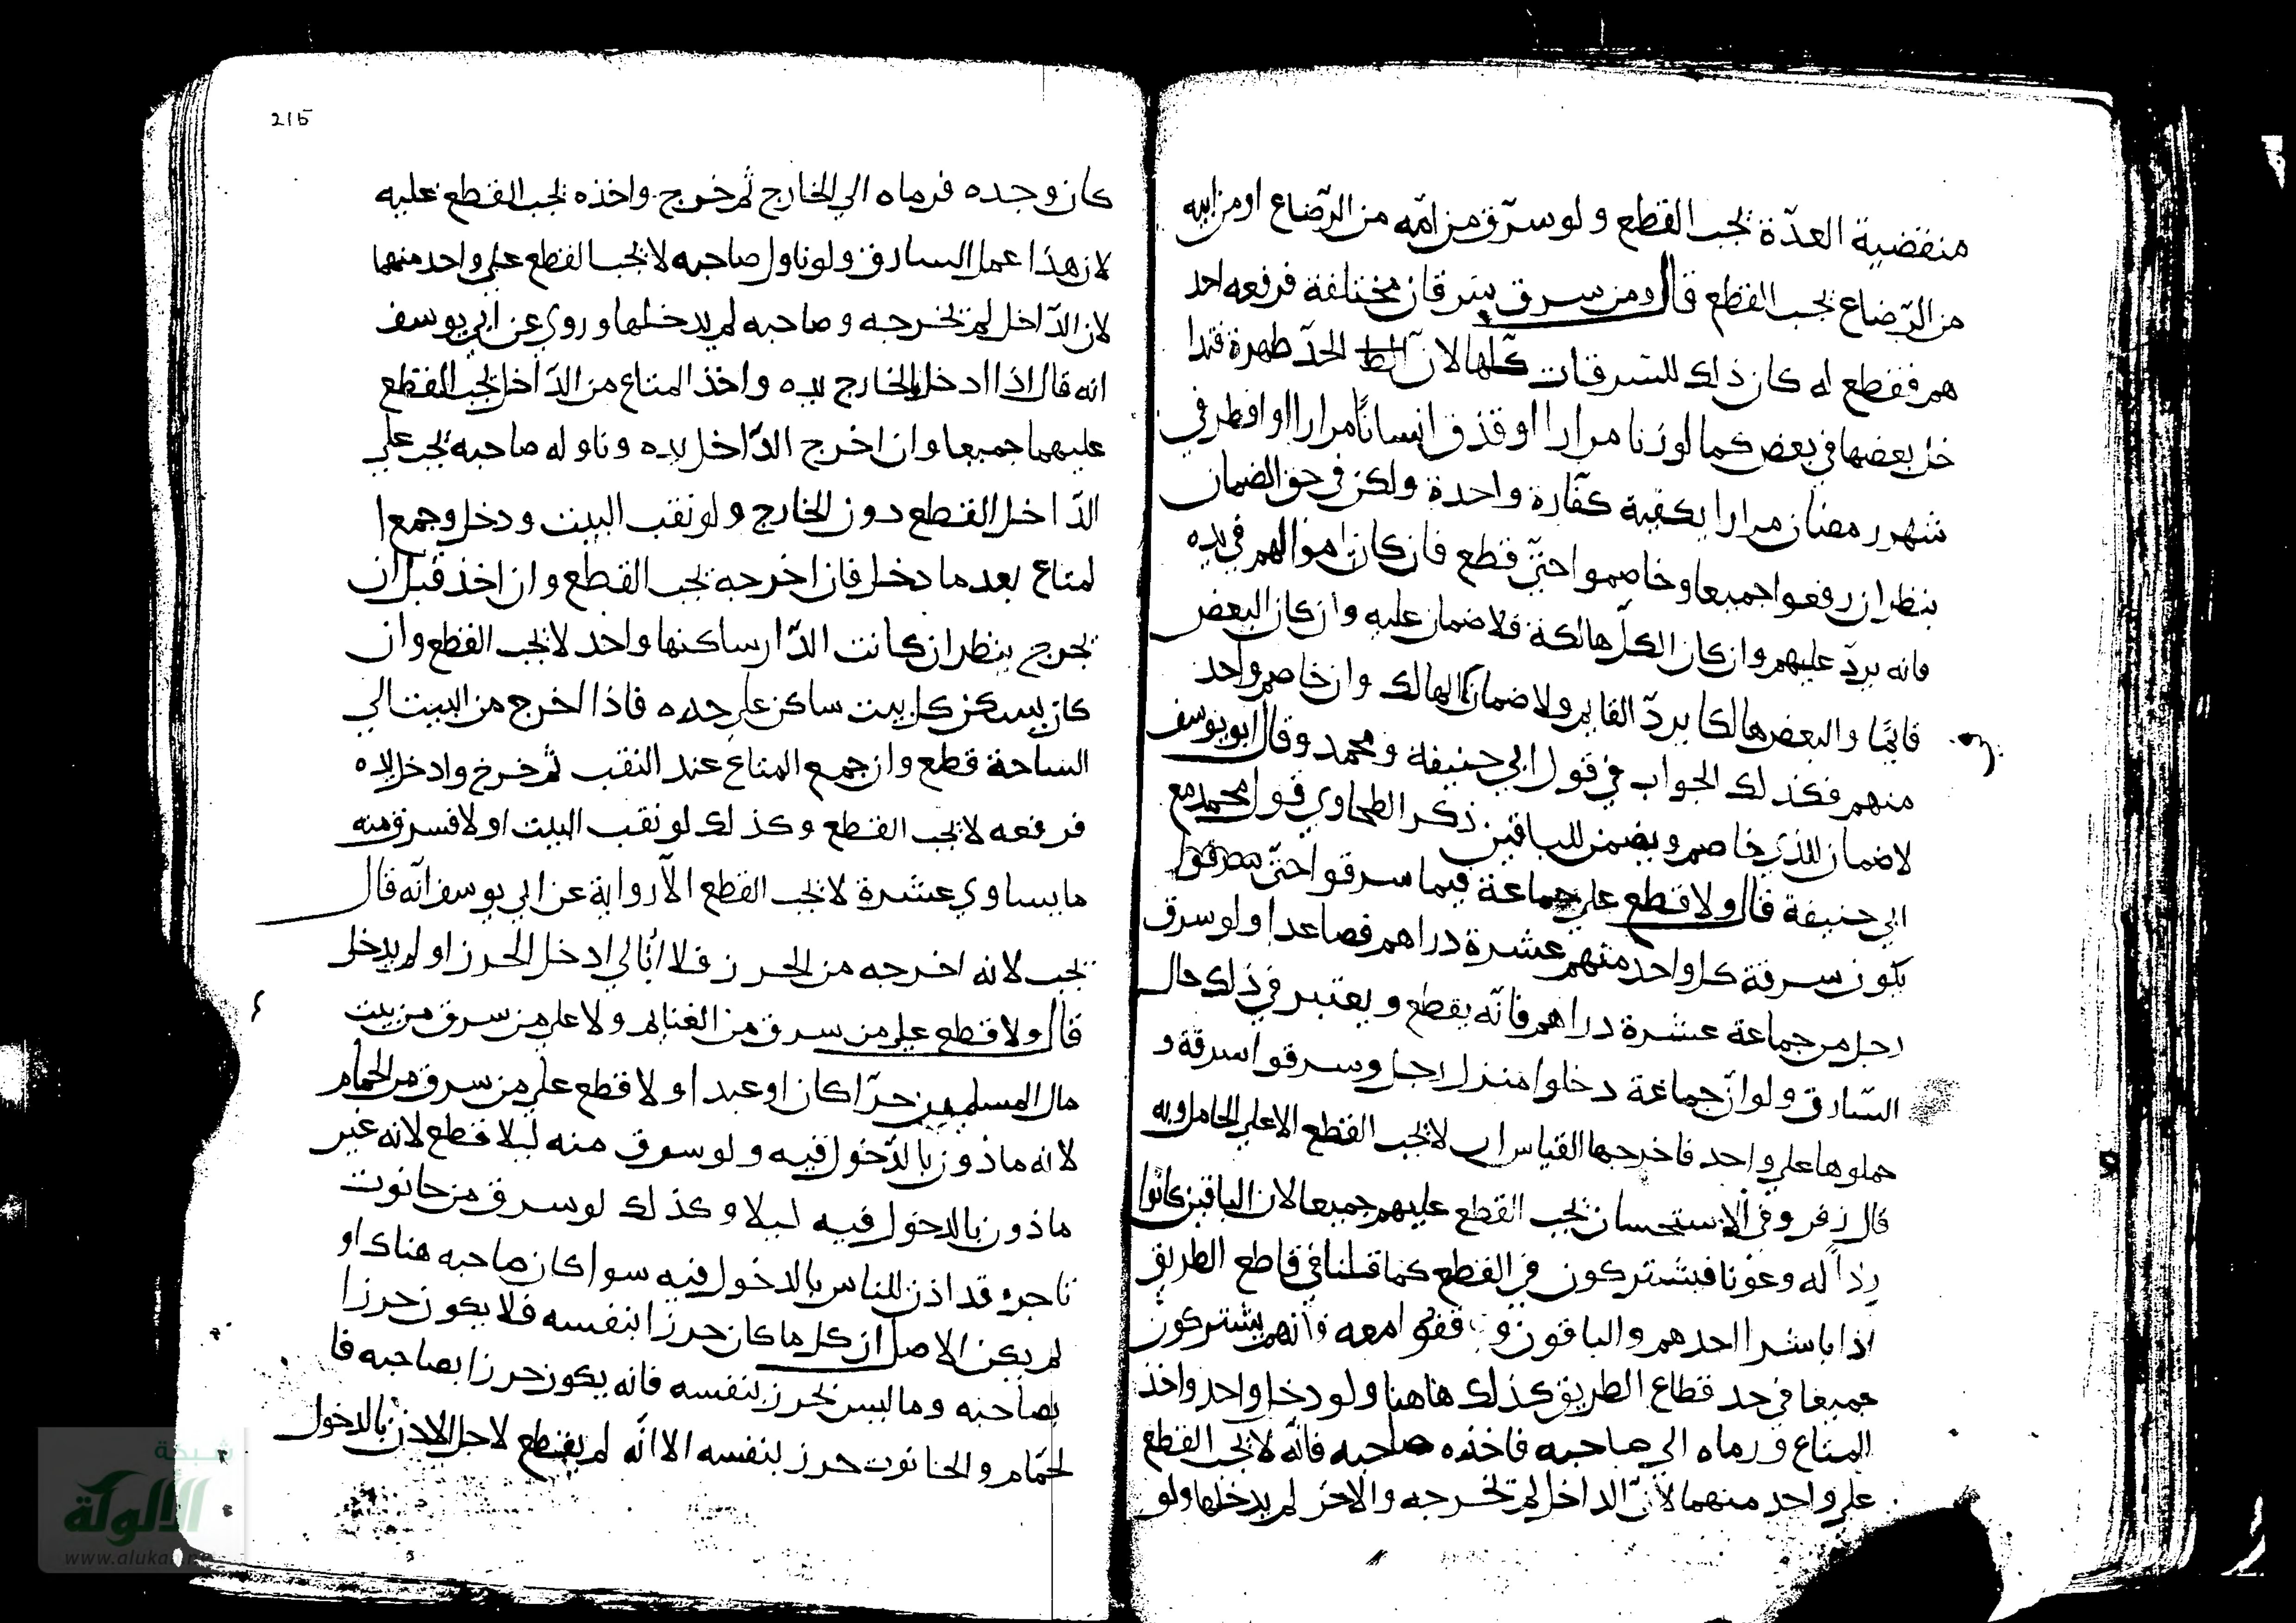 منقضية العدّة يجب القطع ولو سرق من امّه من الرّضاع او من ابيه
من الرّضاع يجب القطع قال ومن سرق سرقات مختلفة فرفعه احد
هم فقطع له كان ذلك للسرقات كلّها لان الحدّ طهرة فتدا
خل بعضها في بعض كما لو زنا مرارا او قذف انسانًا مرارا او افطر في
شهر رمضان مرارا يكفيه كفّارة واحدة ولكن في حق الضمان
ينظر ان رفعوا جميعا وخاصموا حتّي قطع فان كان اموالهم في يده
فانه يردّ عليهم وان كان الكلّ هالكة فلا ضمان عليه وان كان البعض
قائما والبعض هالكا يردّ القايم ولا ضمان الهالك وان خاصم واحد
منهم فكذلك الجواب في قول ابي حنيفة ومحمد وقال ابو يوسف
لا ضمان للذي خاصم ويضمن للباقين ذكر الطحاوي قول محمد مع
ابي حنيفة قال ولا قطع علي جماعة فيما سرقوا حتّي
يكون سرقة كل واحد منهم عشرة دراهم فصاعدا ولو سرق
رجل من جماعة عشرة دراهم فانّه يقطع ويعتبر في ذلك حال
السّارق ولو انّ جماعة دخلوا منزل رجل وسرقوا سرقة و
حملوها علي واحد فاخرجها القياس ان لا يجب القطع الا علي الحامل وبه
قال زفر وفي الاستحسان يجب القطع عليهم جميعا لان الباقين كانوا
ردأً له وعونا فيشتركون في القطع كما قلنا في قاطع الطريق
اذا باشر احدهم والباقون وقفوا معه فانهم يشتركون
جميعا في حد قطاع الطريق كذلك هاهنا ولو دخل واحد واخذ
المتاع ورماه الي صاحبه فاخذه صاحبه فانّه لا يجب القطع
علي واحد منهما لانّ الداخل لم يخرجه والاخر لم يدخلها ولو
215
كان وحده فرماه الي الخارج ثم خرج واخذه يجب القطع عليه
لان هذا عمل السارق ولو ناول صاحبه لا يجب القطع علي واحد منهما
لان الدّاخل لم يخرجه وصاحبه لم يدخلها وروي عن ابي يوسف
انه قال اذا ادخل الخارج يده واخذ المتاع من الدّاخل يجب القطع
عليهما جميعا وان اخرج الدّاخل يده وناوله صاحبه يجب علي
الدّاخل القطع دون الخارج ولو نقب البيت ودخل وجمع ا
لمتاع بعد ما دخل فان اخرجه يجب القطع وان اخذ قبل ان
يخرج ينظر ان كانت الدّار ساكنها واحد لا يجب القطع وان
كان يسكن كل بيت ساكن علي حده فاذا اخرج من البيت الي
السّاحة قطع وان جمع المتاع عند النقب ثم خرج وادخل يده
فرفعه لا يجب القطع وكذلك لو نقب البيت اولا فسرق منه
ما يساوي عشرة لا يجب القطع الاّ رواية عن ابي يوسف انّه قال
يجب لانه اخرجه من الحرز فلا ابالي ادخل الحرز او لم يدخل
قال ولا قطع علي من سرق من الغنايم ولا علي من سرق من بيت
مال المسلمين حرّا كان او عبدا ولا قطع علي من سرق من الحمام
لانه ماذون بالدّخول فيه ولو سرق منه ليلا قطع لانه غير
ماذون بالدخول فيه ليلا وكذلك لو سرق من حانوت
تاجر قد اذن للناس بالدخول فيه سوا كان صاحبه هناك او
لم يكن الاصل ان كل ما كان حرزا بنفسه فلا يكون حرزا
بصاحبه وما ليس بحرز بنفسه فانه يكون حرزا بصاحبه فا
لحمّام والحانوت حرز بنفسه الا انّه لم يقطع لاجل الاذن بالدخول
شبكة
الألوكة